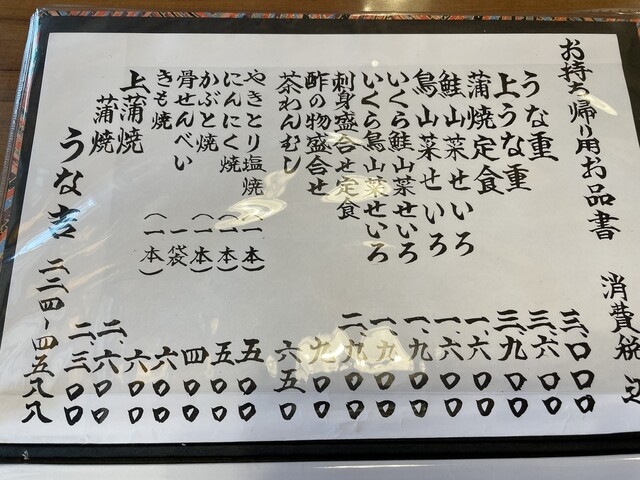 お持ち帰り用お品書 消費税込
うな重 三、〇〇〇
上うな重 三、六〇〇
蒲焼定食 三、九〇〇
鮭山菜せいろ 一、六〇〇
鳥山菜せいろ 一、六〇〇
いくら鮭山菜せいろ 一、九〇〇
いくら鳥山菜せいろ 一、九〇〇
刺身盛合せ定食 二、九〇〇
酢の物盛合せ 九〇〇
茶わんむし 六五〇
やきとり塩焼（一本） 五〇〇
にんにく焼（一本） 五〇〇
かぶと焼（一本） 四〇〇
骨せんべい 一袋 六〇〇
きも焼（一本） 六〇〇
上蒲焼 二、六〇〇
蒲焼 二、三〇〇
うな吉 二二四-四五八八